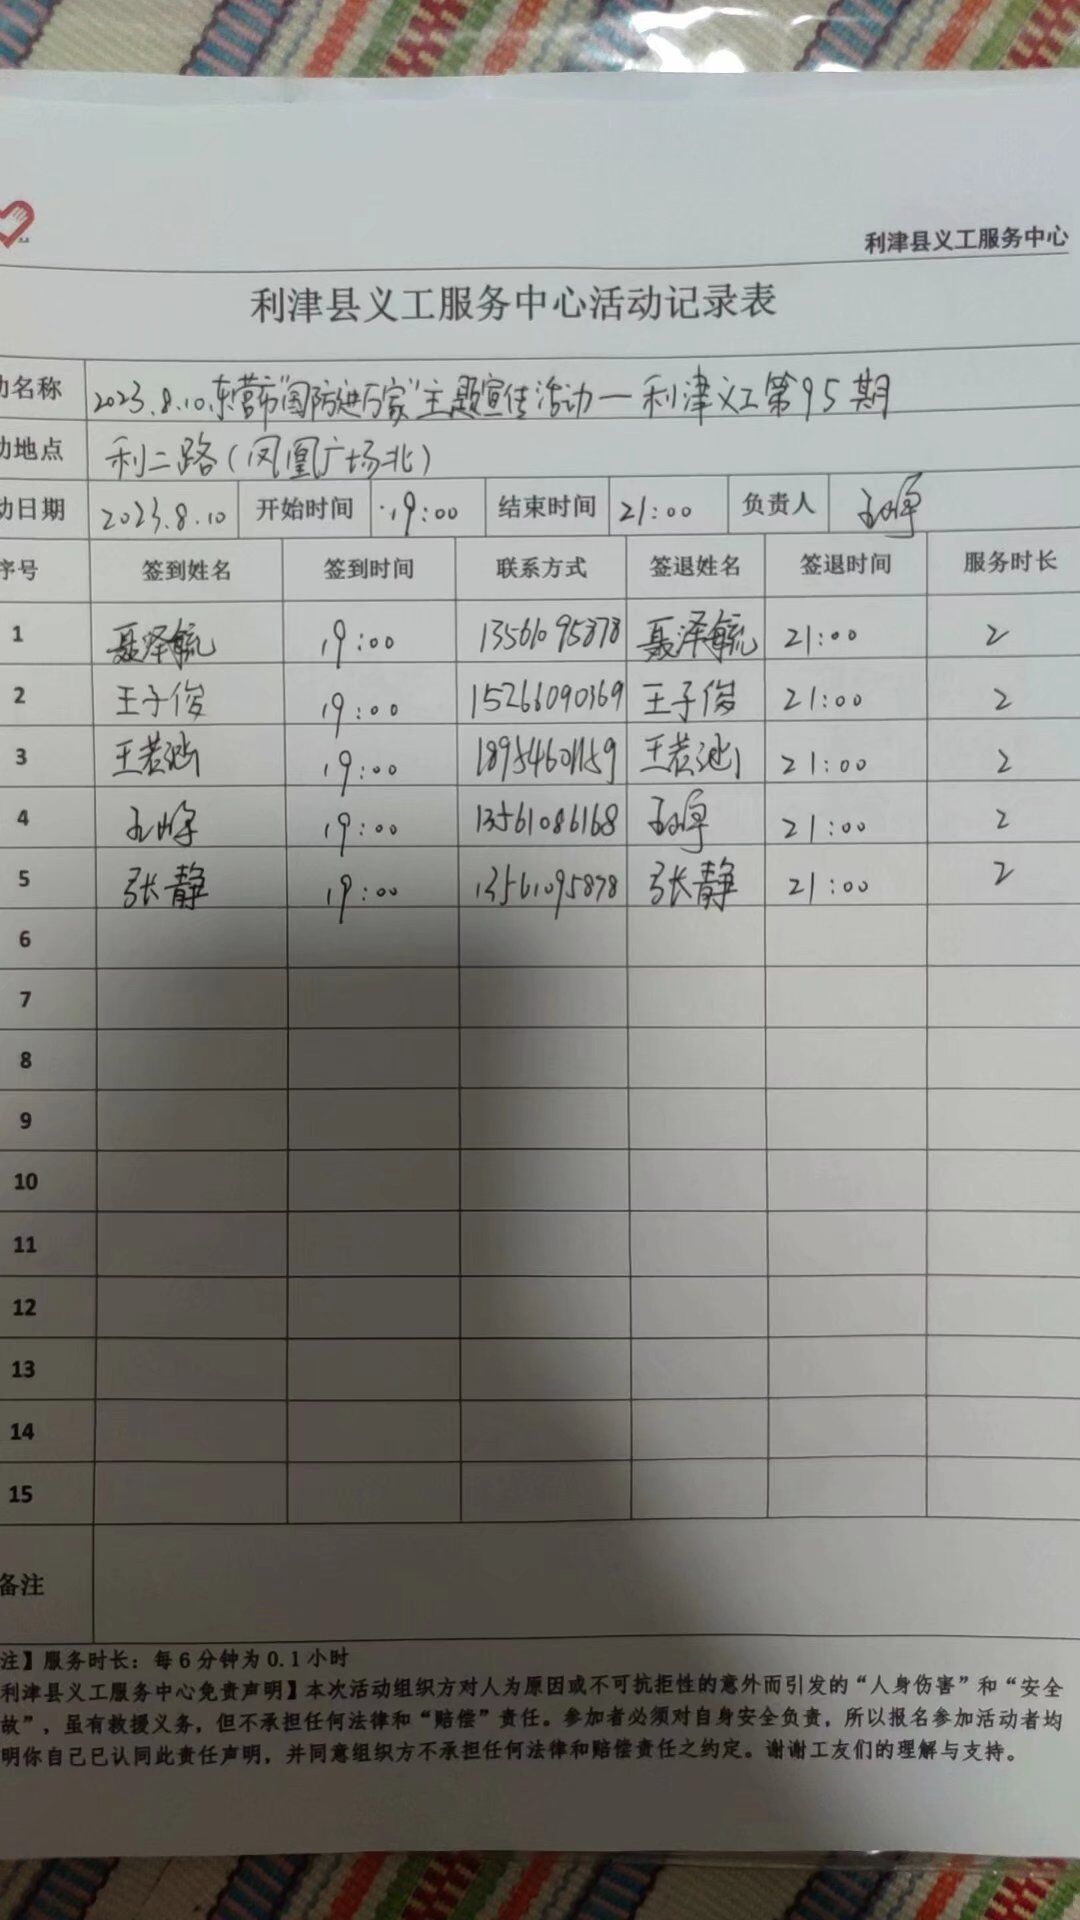 利津县义工服务中心
利津县义工服务中心活动记录表
动名称 2023.8.10.东营市"国防进万家"主题宣传活动—利津义工第95期
动地点 利二路(凤凰广场北)
动日期 2023.8.10 开始时间 19:00 结束时间 21:00 负责人
序号 签到姓名 签到时间 联系方式 签退姓名 签退时间 服务时长
1 聂泽毓 19:00 13561095878 聂泽毓 21:00 2
2 王子俊 19:00 15266090369 王子俊 21:00 2
3 王若涵 19:00 18954601159 王若涵 21:00 2
4 19:00 13561086168 21:00 2
5 张静 19:00 13561095878 张静 21:00 2
6
7
8
9
10
11
12
13
14
15
备注
注】服务时长：每6分钟为0.1小时
利津县义工服务中心免责声明】本次活动组织方对人为原因或不可抗拒性的意外而引发的“人身伤害”和“安全
故”，虽有救援义务，但不承担任何法律和“赔偿”责任。参加者必须对自身安全负责，所以报名参加活动者均
明你自己已认同此责任声明，并同意组织方不承担任何法律和赔偿责任之约定。谢谢工友们的理解与支持。